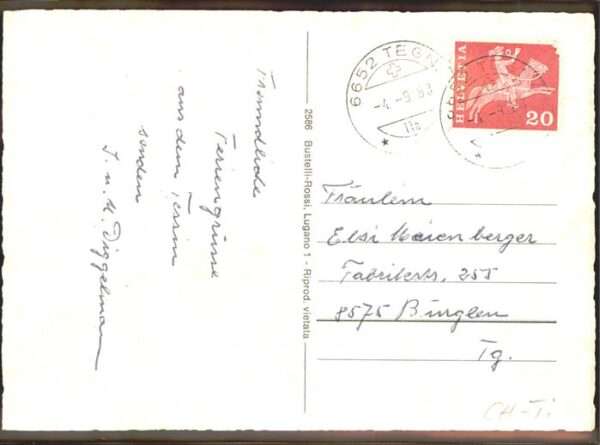 Freundliche
Feriengrüsse
aus dem Tessin
senden
J. u. M. Diggelmann
2586 Bustelli-Rossi, Lugano 1 - Riprod. vietata
6652 TEGN
-4.-9.83
HELVETIA
20
Fräulein
Elsi Maienberger
Fabrikstr. 255
8575 Bürglen
Tg.
CH-Ti